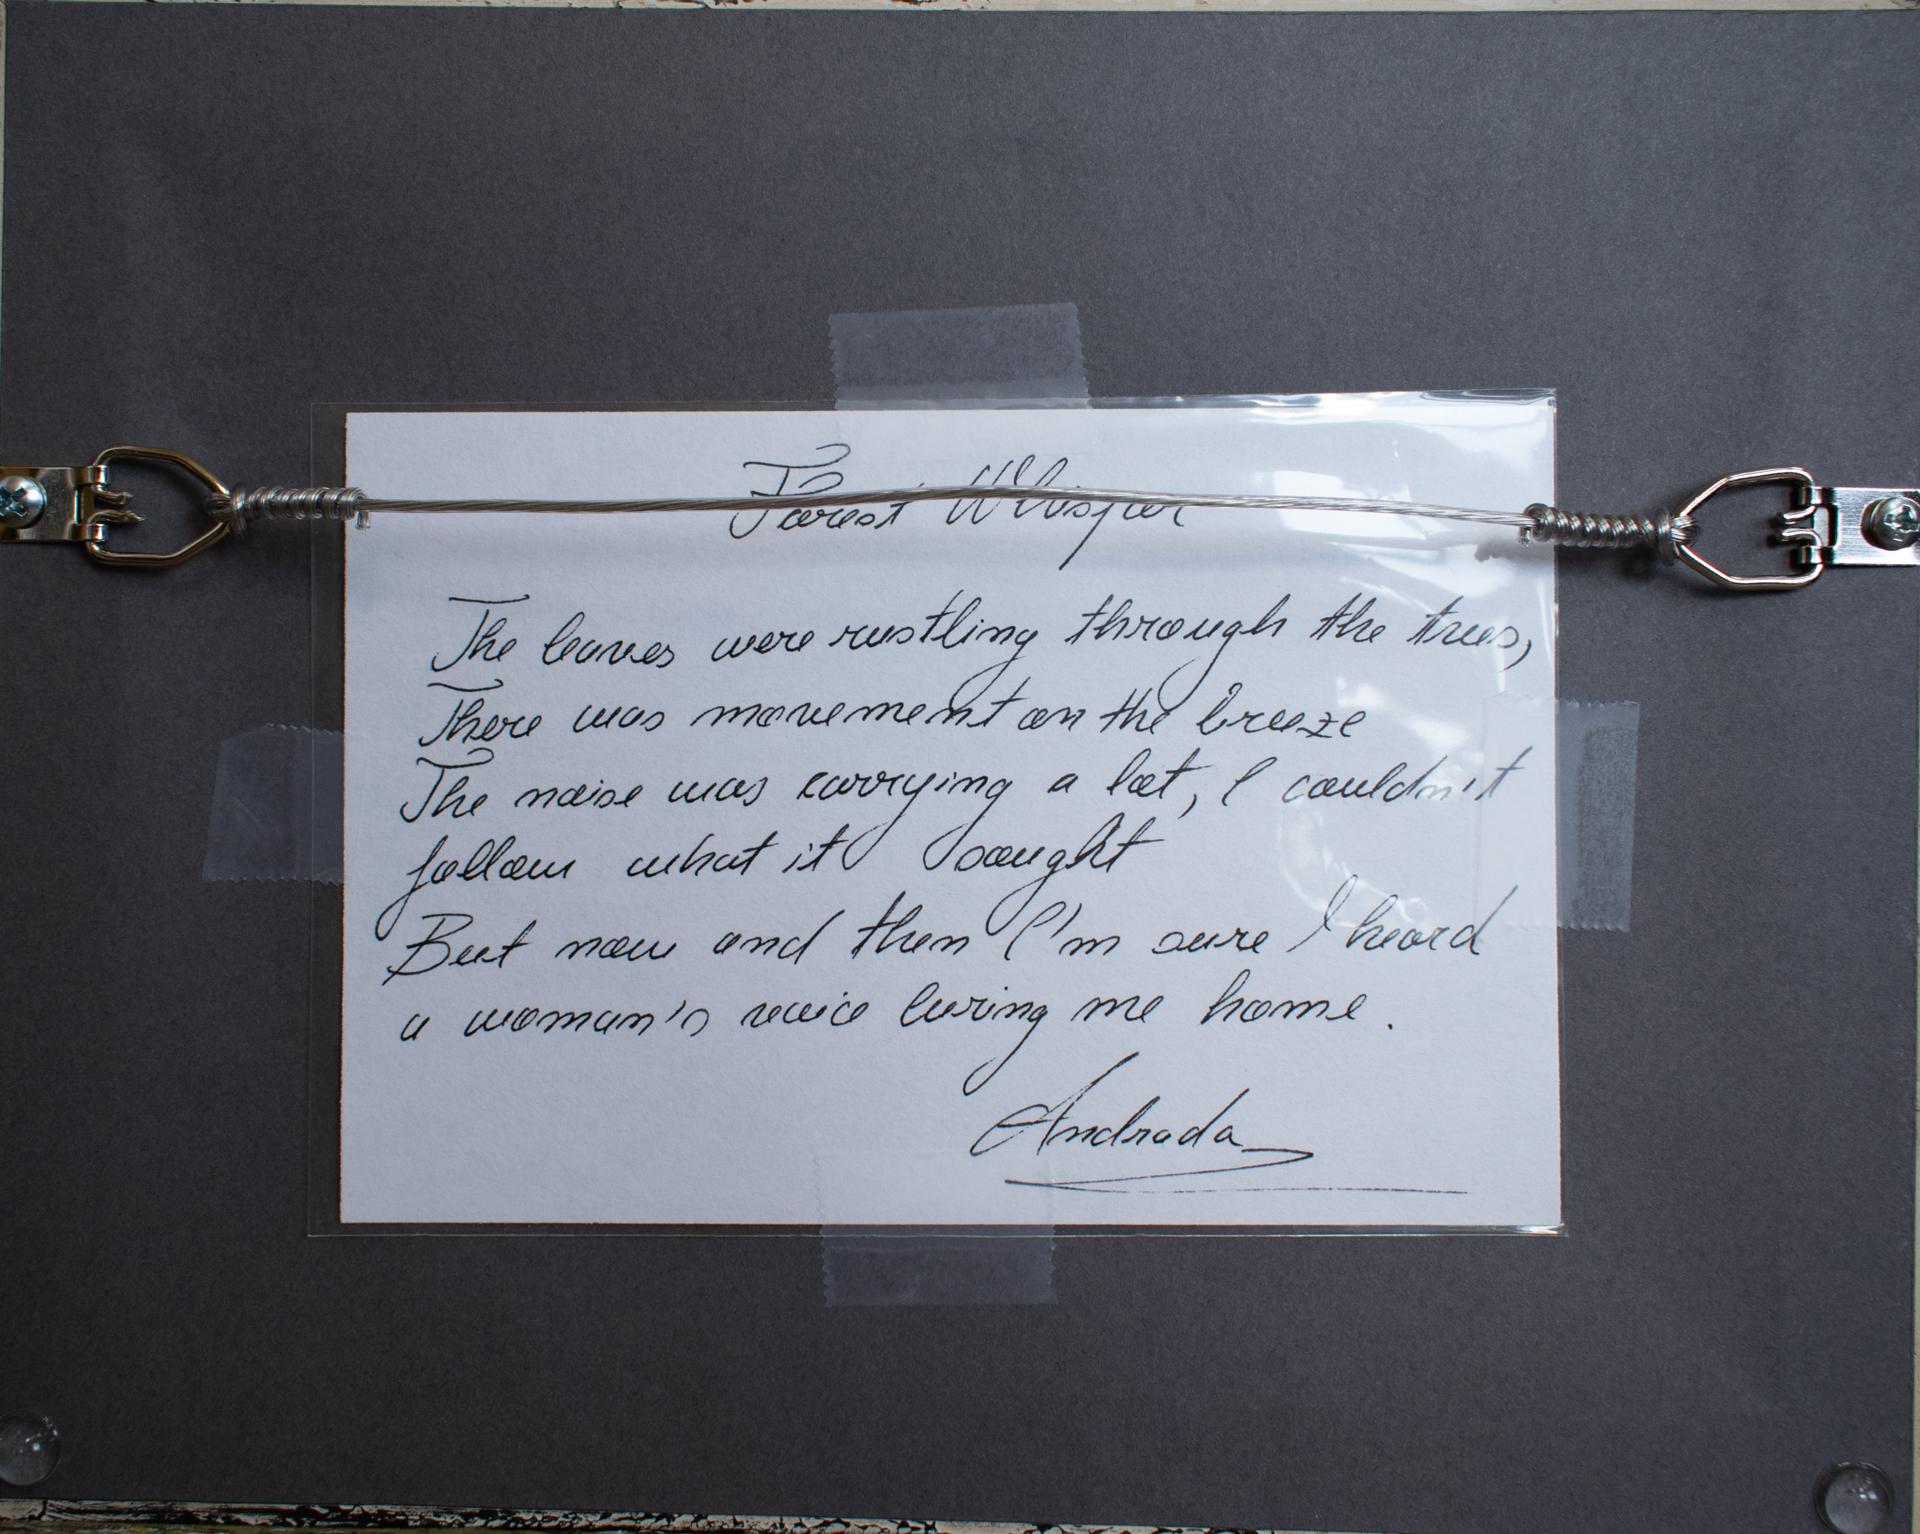 Forest Whisper
The leaves were rustling through the trees,
There was movement on the breeze
The noise was carrying a lot, I couldn't
follow what it sought
But now and then I'm sure I heard
a woman's voice luring me home.
Andrada